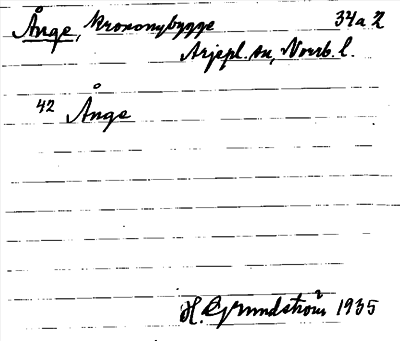 Ånge, Krononybygge 34a2
Arjepl. sn, Norrb. l.
42 Ånge
H. Grundström 1935